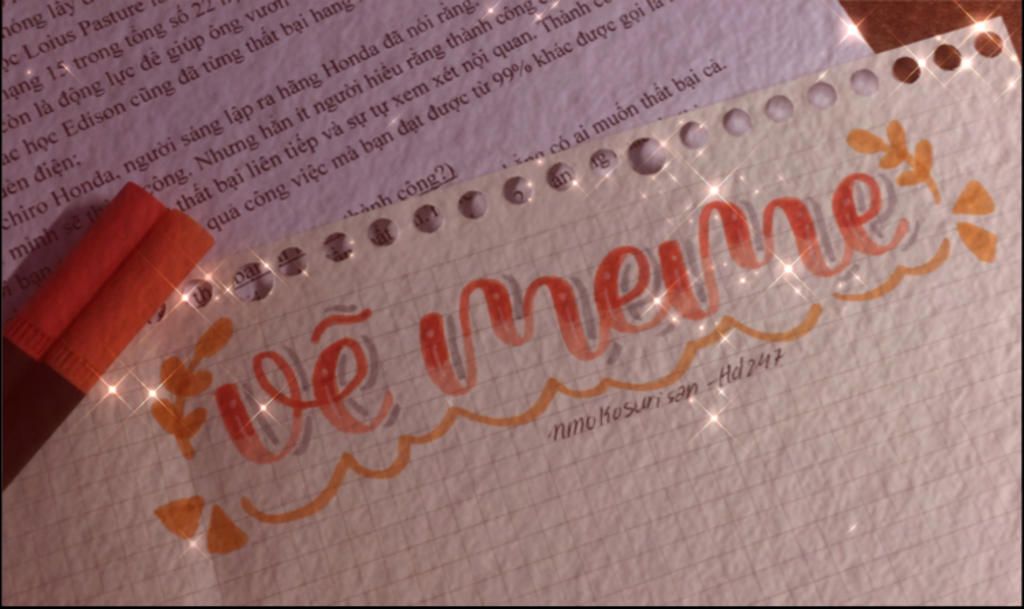 ọc Loius Pasture
hạng 15 trong tổng số 22
còn là động lực để giúp ông vươn
học Edison cũng đã từng thất bại hàng
điện;
chiro Honda, người sáng lập ra hãng Honda đã nói rằng
công. Nhưng hẳn ít người hiểu rằng thành công
thất bại liên tiếp và sự tự xem xét nội quan. Thành
quả công việc mà bạn đạt được từ 99% khác được gọi là
thành công?) có ai muốn thất bại cả.
vẽ meme
nmokosurisan - Hd247